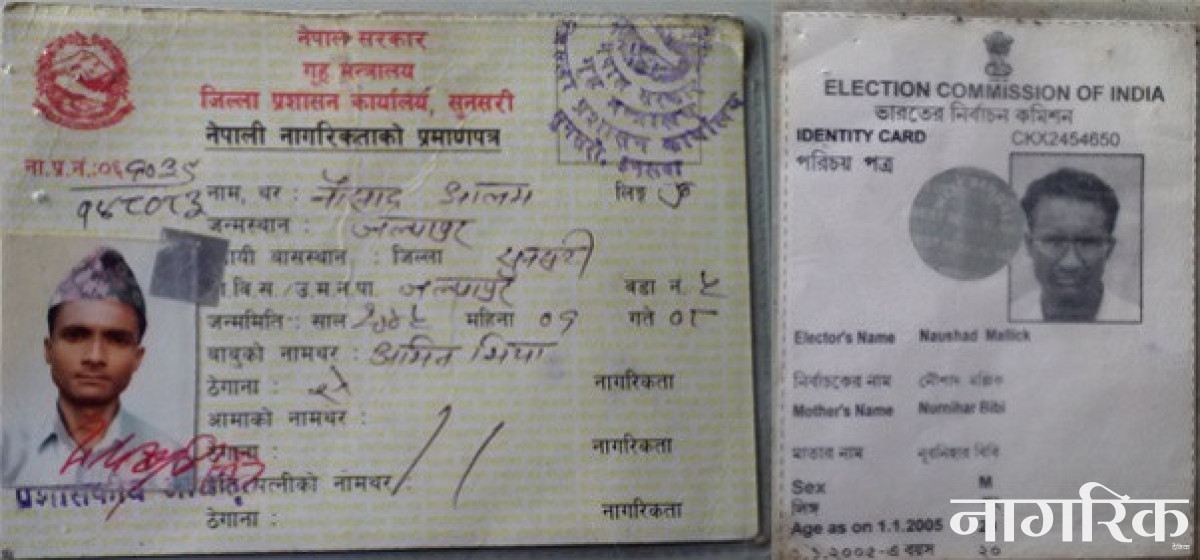 नेपाल सरकार
गृह मन्त्रालय
जिल्ला प्रशासन कार्यालय, सुनसरी
नेपाली नागरिकताको प्रमाणपत्र
ना.प्र.नं.:०६
नाम, थर : नौसाद आलम लिङ्ग पु
जन्मस्थान : जल्पापुर
स्थायी बासस्थान : जिल्ला सुनसरी
गा.वि.स./उ.म.न.पा. जल्पापुर वडा नं. ५
जन्ममिति : साल २०४५ महिना ०१ गते ०८
बाबुको नामथर : अमिन मिया
ठेगाना : ऐ नागरिकता
आमाको नामथर :
ठेगाना : नागरिकता
पति/पत्नीको नामथर :
ठेगाना : नागरिकता
ELECTION COMMISSION OF INDIA
ভারতের নির্বাচন কমিশন
IDENTITY CARD CKX2454650
পরিচয় পত্র
Elector's Name Naushad Mallick
নির্বাচকের নাম নৌশাদ মল্লিক
Mother's Name Nurnihar Bibi
মাতার নাম নূরনিহার বিবি
Sex M
লিঙ্গ
Age as on 1.1.2005 20
১.১.২০০৫-এ বয়স ২০
नागरिक
दैनिक